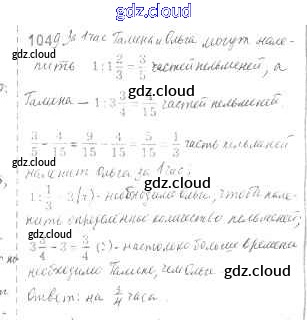 gdz.cloud
1049. За 1 час Галина и Ольга могут нале-
gdz.cloud
пить 1:1 2/3 = 3/5 частей пельменей, а
gdz.cloud
Галина – 1:3 3/4 = 4/15 частей пельменей.
gdz.cloud
3/5 - 4/15 = 9/15 - 4/15 = 5/15 = 1/3 часть пельменей
gdz.cloud
налепит Ольга за 1 час;
gdz.cloud
1: 1/3 = 3 (ч) - необходимо Ольге, чтобы нале-
пить определённое количество пельменей;
gdz.cloud
3 3/4 - 3 = 3/4 (ч) - настолько больше времени
gdz.cloud
необходимо Галине, чем Ольге
gdz.cloud
Ответ: на 3/4 часа.
gdz.cloud